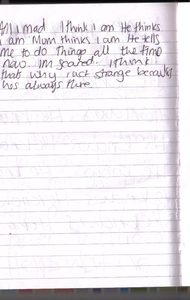 All I mad I think I am He thinks
I am Mum thinks I am He tells
me to do things all the time
now. Im scared. I think
thats why I act strange because
hes always there